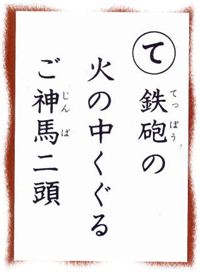 て
鉄砲の
火の中くぐる
ご神馬二頭
てっぽう
じんば